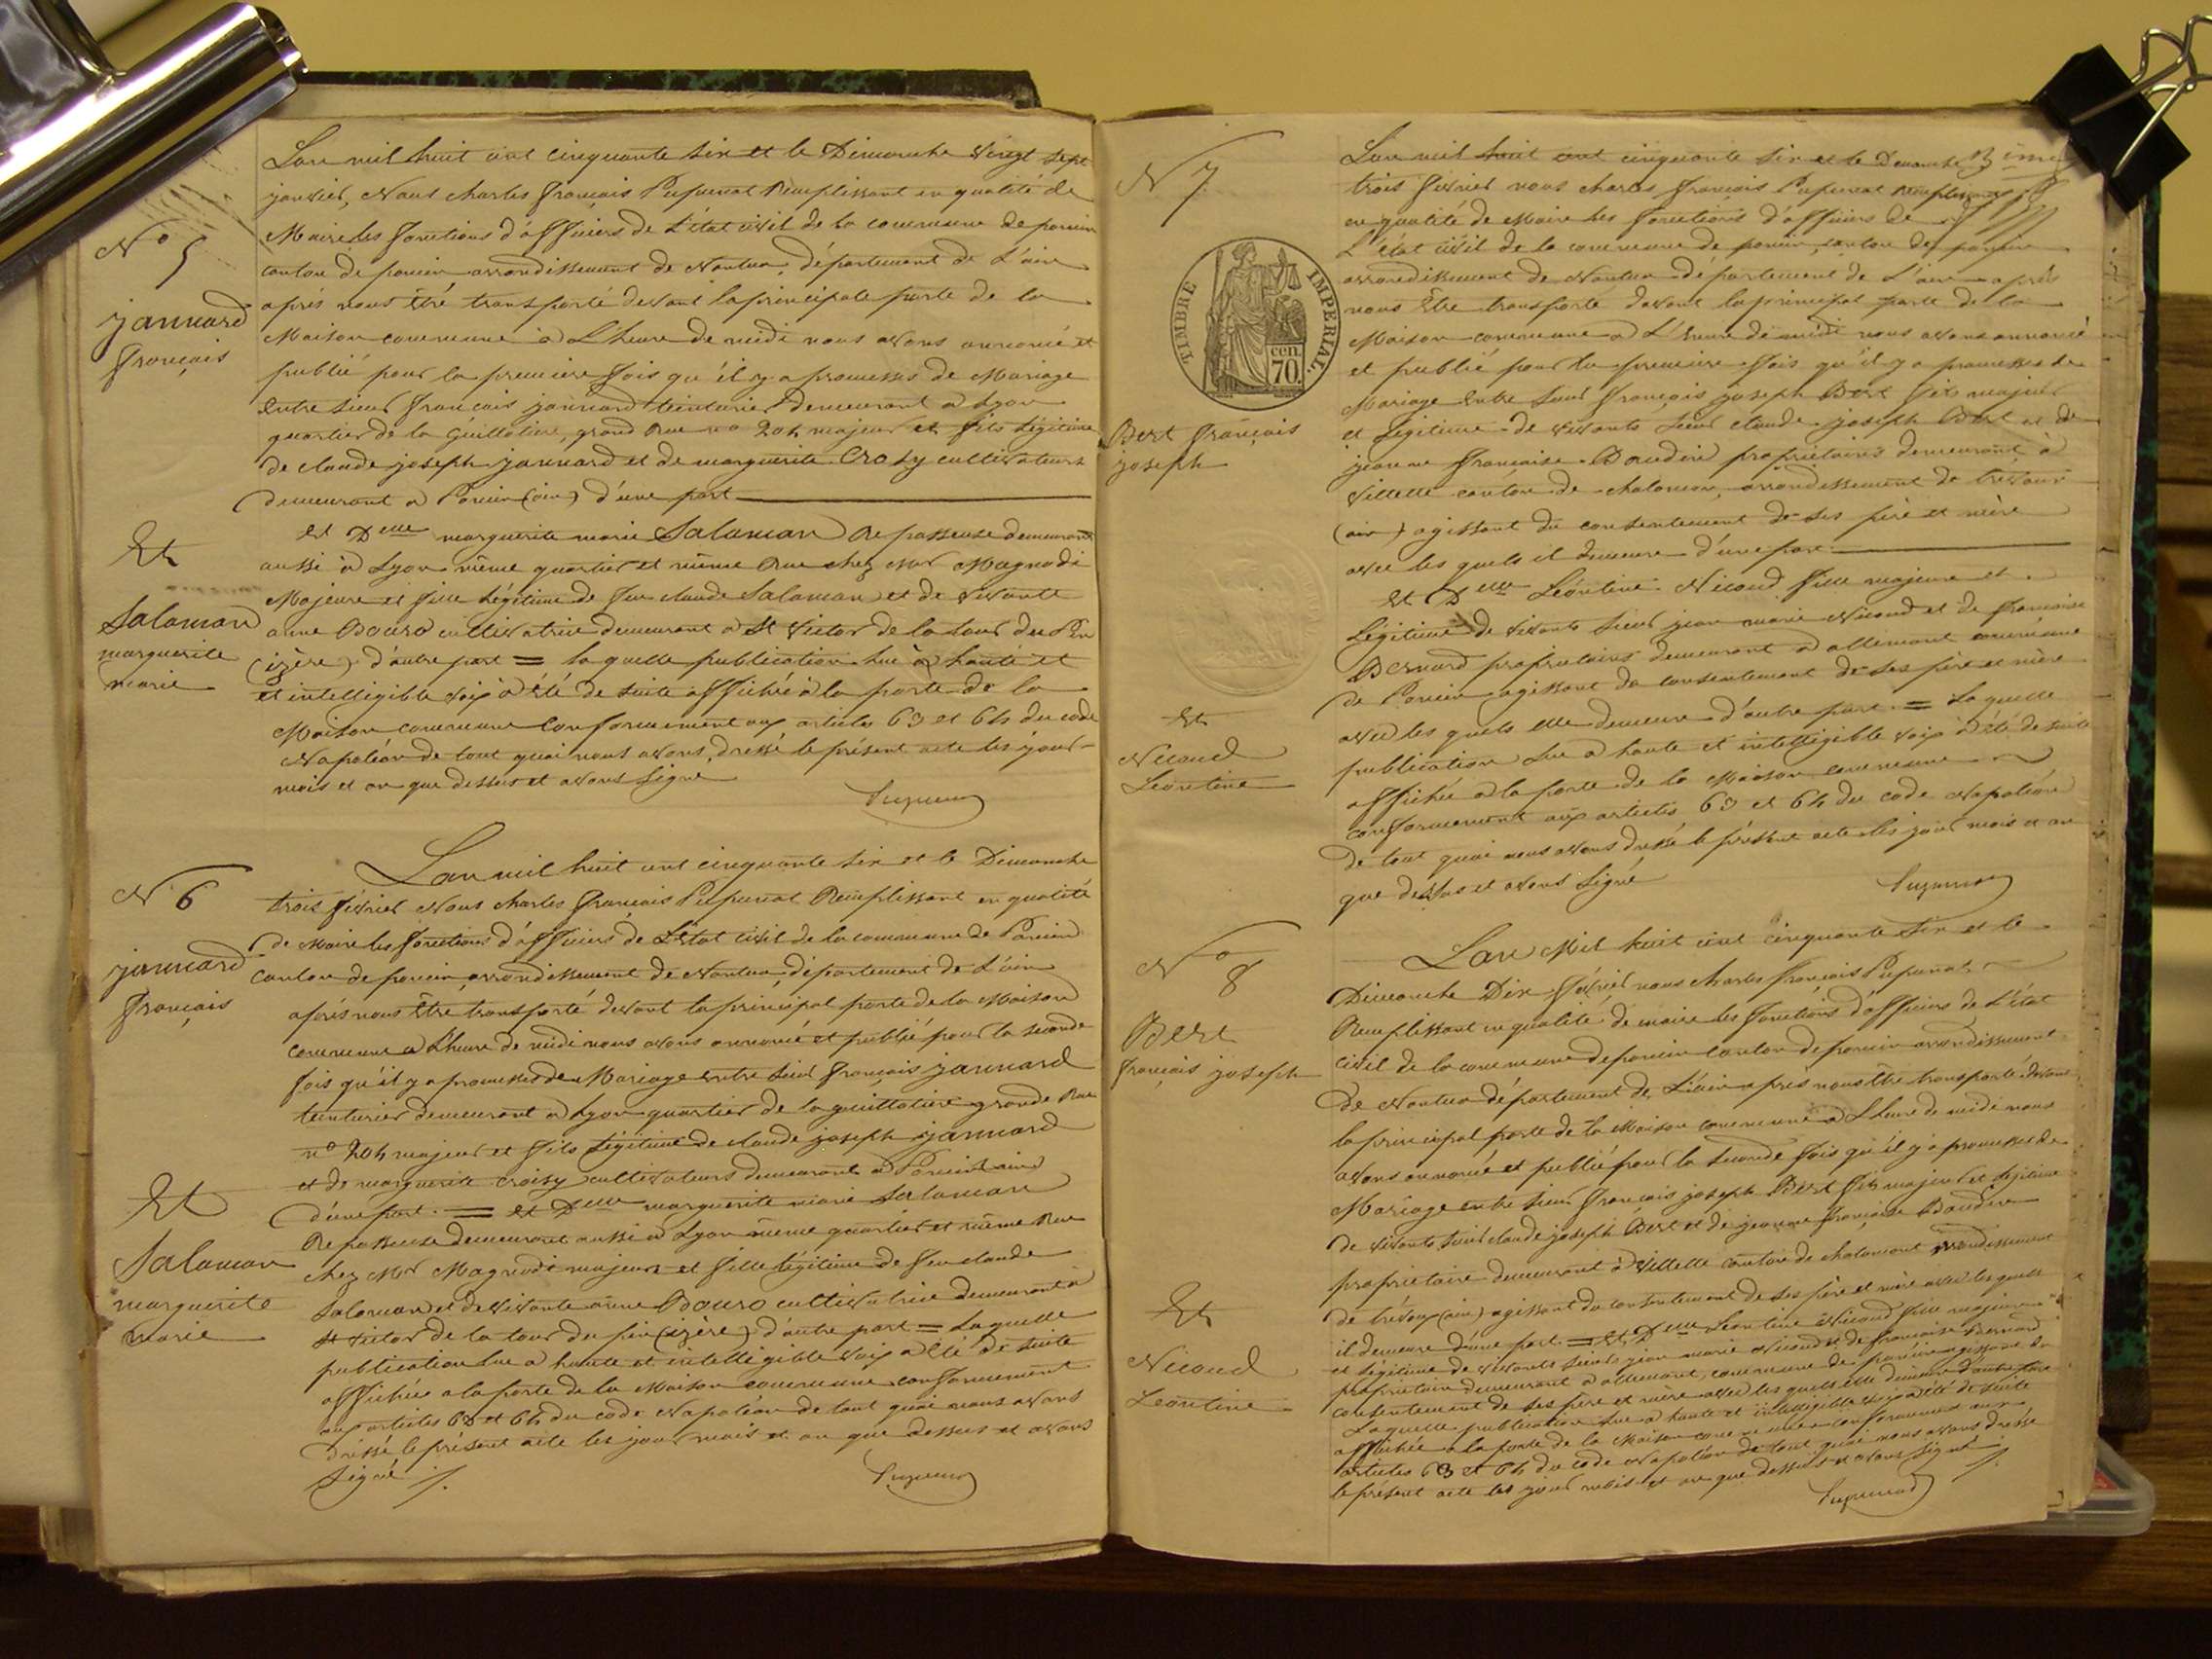 N° 5
jannard
françois
Et
Salaman
marguerite
marie
Lan mil huit cent cinquante six et le Dimanche vingt sept
janvier, Nous charles françois Pupunat Remplissant en qualité de
Maire les fonctions d'officiers de L'état civil de la commune de poncin
canton de poncin arrondissement de Nantua, département de L'ain
après nous être transporté devant la principale porte de la
Maison commune à L'heure de midi nous avons annoncé et
publié pour la premiere fois qu'il y a promesses de Mariage
Entre sieur François jannard teinturier demeurant à Lyon
quartier de la Guillotiere, grand Rue n° 204 majeur et fils Légitime
de claude joseph jannard et de marguerite Crozy cultivateurs
demeurant a Poncin (ain) d'une part
Et Delle marguerite marie Salaman Repasseuse demeurant
aussi à Lyon même quartier et même Rue chez Mr Magnodi
Majeure et fille Légitime de feu claude Salaman et de vivante
anne Bouro cultivatrice demeurant à St Victor de la tour du Pin
(izère) d'autre part = la quelle publication lue à haute et
et intelligible voix a été de suite affichée à la porte de la
Maison commune conformement aux articles 63 et 64 du code
Napoléon de tout quoi nous avons dressé le présent acte les jour
mois et an que dessus et avons signé
Pupunat
N° 6
jannard
françois
Et
Salaman
marguerite
marie
Lan mil huit cent cinquante six et le Dimanche
trois février Nous charles françois Pupunat Remplissant en qualité
de Maire les fonctions d'officiers de L'état civil de la commune de Poncin
canton de poncin arrondissement de Nantua, département de L'ain
après nous être transporté devant la principal porte de la Maison
commune a L'heure de midi nous avons annoncé et publié pour la seconde
fois qu'il y a promesses de Mariage entre sieur françois jannard
teinturier demeurant à Lyon quartier de la guillotiere grande Rue
n° 204 majeur et fils légitime de claude joseph jannard
et de marguerite croizy cultivateurs demeurant à Poncin (ain)
d'une part. = et Delle marguerite marie Salaman
Repasseuse demeurant aussi à Lyon même quartier et même Rue
chez Mr Magnodi majeure et fille légitime de feu claude
Salaman et de vivante anne Bouro cultivatrice demeurant à
St Victor de la tour du pin (izère) d'autre part = Laquelle
publication lue a haute et intelligible voix a été de suite
affichée a la porte de la Maison commune conformement
aux articles 63 et 64 du code Napoléon de tout quoi nous avons
dressé le présent acte les jour mois et an que dessus et avons
signé
Pupunat
N° 7
TIMBRE IMPERIAL.
cen.
70.
Bert françois
joseph
Et
Nicoud
Léontine
Lan mil huit cent cinquante six et le Dimanche
trois février nous charles françois Pupunat Remplissant
en qualité de Maire les fonctions d'officiers de
L'état civil de la commune de poncin canton de poncin
arrondissement de Nantua département de L'ain après
nous être transporte devant la principal porte de la
Maison commune a L'heure de midi nous avons annoncé
et publié pour la premiere fois qu'il y a promesses de
Mariage entre sieur françois joseph Bert fils majeur
et légitime de vivants sieur claude joseph Bert et de
jeanne françoise Baudin propriétaires demeurant à
villette canton de chalamon, arrondissement de trevoux
(ain) agissant du consentement de ses père et mère
avec les quels il demeure d'une part.
Et Delle Léontine Nicoud fille majeure et
Légitime de vivants sieur jean marie Nicoud et de françoise
Bernard propriétaires demeurant a allement commune
de Poncin agissant du consentement de ses père et mère
avec les quels elle demeure d'autre part. = La quelle
publication lue a haute et intelligible voix a été de suite
affichée a la porte de la Maison commune
conformement aux articles 63 et 64 du code Napoléon
de tout quoi nous avons dressé le présent acte les jour mois et an
que dessus et avons signé
Pupunat
N° 8
Bert
françois joseph
Et
Nicoud
Léontine
Lan Mil huit cent cinquante six et le
Dimanche Dix février nous charles françois Pupunat
Remplissant en qualité de maire les fonctions d'officiers de L'état
civil de la commune de poncin canton de poncin arrondissement
de Nantua département de L'ain après nous être transporté devant
la principal porte de la Maison commune a L'heure de midi nous
avons annoncé et publié pour la seconde fois qu'il y a promesses de
Mariage entre sieur françois joseph Bert fils majeur et légitime
de vivants sieur claude joseph Bert et de jeanne françoise Baudin
propriétaire demeurant à villette canton de chalamont arrondissement
de trévoux (ain) agissant du consentement de ses père et mère avec les quels
il demeure d'une part = et Delle Léontine Nicoud fille majeure
et légitime de vivants sieur jean marie Nicoud et de françoise Bernard
propriétaires demeurant a allement, commune de poncin agissant du
consentement de ses père et mère avec les quels elle demeure d'autre part
Laquelle publication lue a haute et intelligible voix a été de suite
affichée a la porte de la Maison commune conformement aux
articles 63 et 64 du code Napoléon de tout quoi nous avons dressé
le présent acte les jour mois et an que dessus et avons signé
Pupunat